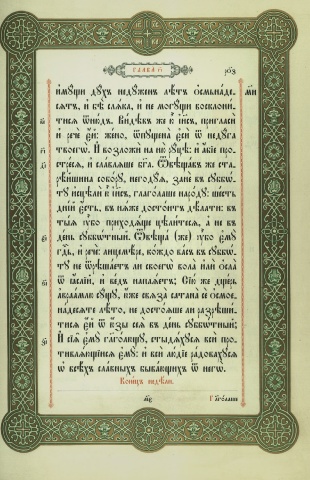 ГЛАВА̀ Г҃І
рл҃г
и҆мꙋ́щи дꙋ́хъ недꙋ́женъ лѣ́тъ ѻ҆смьна́де
сѧтъ, и҆ бѣ̀ слѧ́ка, и҆ не могꙋ́щи восклони́
тисѧ ѿню́дъ. Ви́дѣвъ же ю҆̀ і҆и҃съ, пригласѝ
и҆ речѐ є҆́й: же́но, ѿпꙋщена̀ є҆сѝ ѿ недꙋ́га
твоегѡ̀. И҆ возложѝ на ню̀ рꙋ́цѣ: и҆ а҆́бїе про
стре́сѧ, и҆ сла́влѧше бг҃а. Ѿвѣща́въ же ста
рѣ́йшина собо́рꙋ, негодꙋ́ѧ, занѐ въ сꙋббѡ́
тꙋ и҆сцѣлѝ ю҆̀ і҆и҃съ, глаго́лаше наро́дꙋ: ше́сть
дні́й є҆́сть, въ нѧ́же досто́итъ дѣ́лати: въ
ты́ѧ ᲂу҆̀бо приходѧ́ще цѣли́тесѧ, а҆ не въ
де́нь сꙋббѡ́тный. Ѿвѣща̀ (же) ᲂу҆̀бо є҆мꙋ̀
гдⷭ҇ь, и҆ речѐ: лицемѣ́ре, ко́ждо ва́съ въ сꙋббѡ́
тꙋ не ѿрѣша́етъ ли своего̀ вола̀ и҆лѝ ѻ҆сла̀
ѿ ꙗ҆́слїй, и҆ ве́дъ напаѧ́етъ; Сїю́ же дще́рь
а҆враа́млю сꙋ́щꙋ, ю҆́же свѧза̀ сатана̀ сѐ ѻ҆смо́е
на́десѧте лѣ́то, не достоѧ́ше ли разрѣши́
тисѧ є҆́й ѿ ю҆́зы сеѧ̀ въ де́нь сꙋббѡ́тный;
И҆ сїѧ̑ є҆мꙋ̀ глаго́лющꙋ, стыдѧ́хꙋсѧ всѝ про
тивлѧ́ющїисѧ є҆мꙋ̀: и҆ всѝ лю́дїе ра́довахꙋсѧ
ѡ҆ всѣ́хъ сла́вныхъ быва́ющихъ ѿ негѡ̀.
Коне́цъ недѣ́ли.
Глаго́лаше